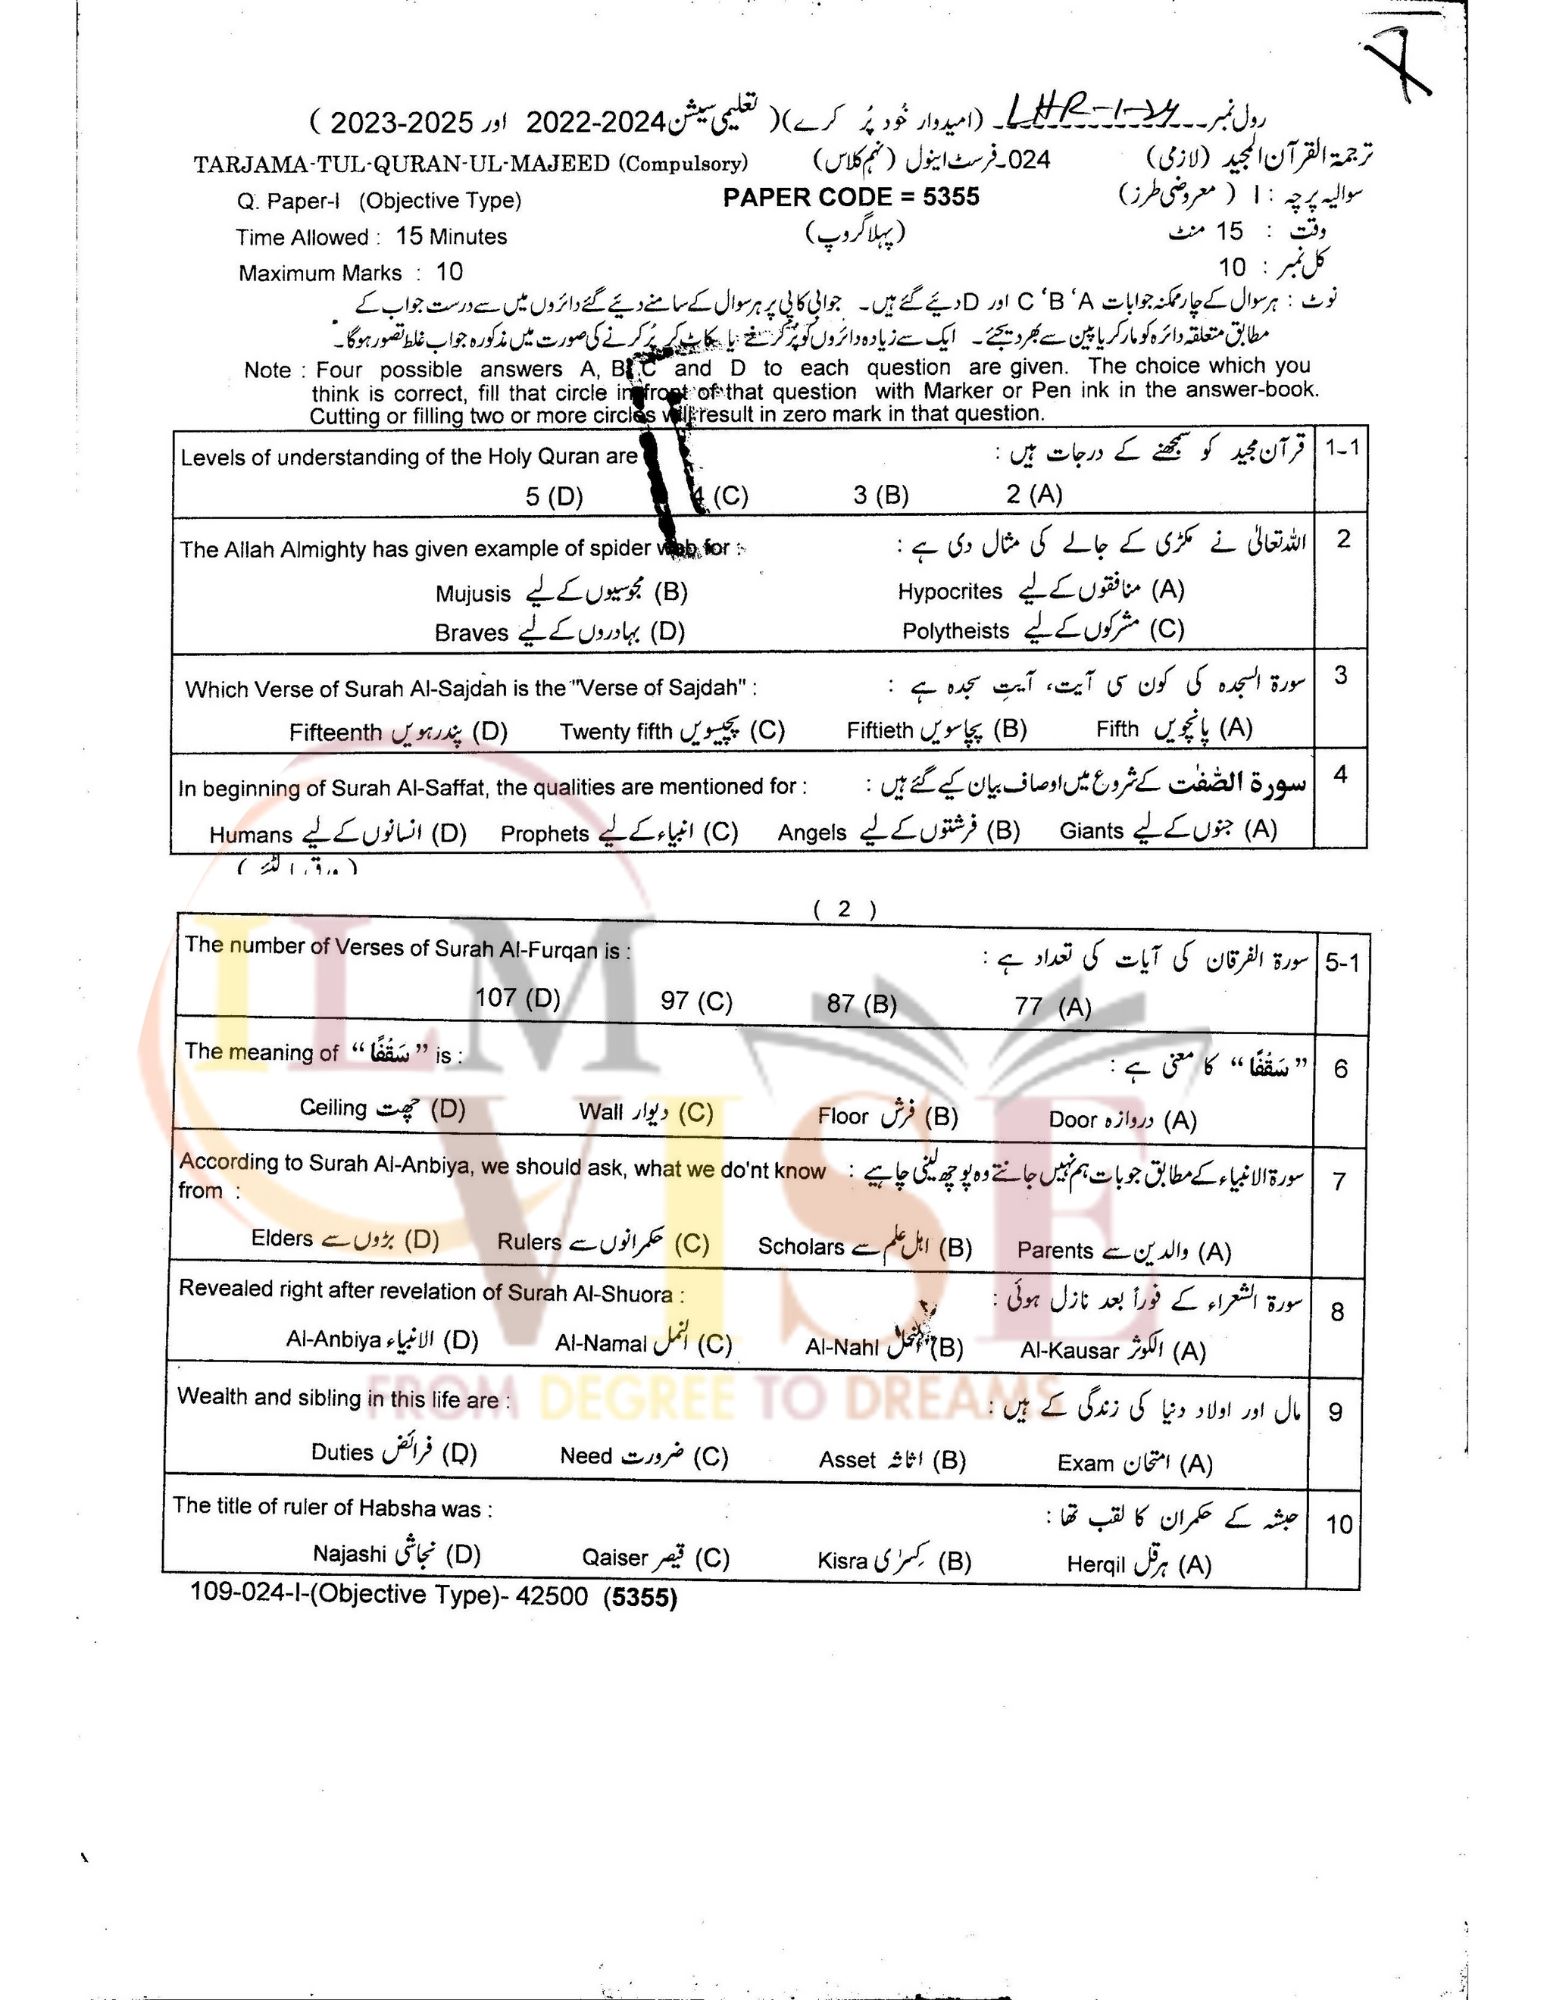 رول نمبر LHR-1-24 (امیدوار خود پُر کرے) (تعلیمی سیشن 2022-2024 اور 2023-2025)
TARJAMA-TUL-QURAN-UL-MAJEED (Compulsory) 024۔فرسٹ اینول (نہم کلاس) ترجمۃ القرآن المجید (لازمی)
Q. Paper-I (Objective Type) PAPER CODE = 5355 سوالیہ پرچہ : I (معروضی طرز)
Time Allowed : 15 Minutes (پہلا گروپ) وقت : 15 منٹ
Maximum Marks : 10 کل نمبر : 10
نوٹ : ہر سوال کے چار ممکنہ جوابات A 'B 'C اور D دئیے گئے ہیں۔ جوابی کاپی پر ہر سوال کے سامنے دئیے گئے دائروں میں سے درست جواب کے
مطابق متعلقہ دائرہ کو مارکر یا پین سے بھر دیجئے۔ ایک سے زیادہ دائروں کو پُر کرنے یا کاٹ کر پُر کرنے کی صورت میں مذکورہ جواب غلط تصور ہوگا۔
Note : Four possible answers A, B, C and D to each question are given. The choice which you
think is correct, fill that circle in front of that question with Marker or Pen ink in the answer-book.
Cutting or filling two or more circles will result in zero mark in that question.
Levels of understanding of the Holy Quran are قرآن مجید کو سمجھنے کے درجات ہیں : 1-1
5 (D) 4 (C) 3 (B) 2 (A)
The Allah Almighty has given example of spider web for : اللہ تعالیٰ نے مکڑی کے جالے کی مثال دی ہے : 2
Mujusis مجوسیوں کے لیے (B) Hypocrites منافقوں کے لیے (A)
Braves بہادروں کے لیے (D) Polytheists مشرکوں کے لیے (C)
Which Verse of Surah Al-Sajdah is the "Verse of Sajdah" : سورۃ السجدہ کی کون سی آیت، آیتِ سجدہ ہے : 3
Fifteenth پندرہویں (D) Twenty fifth پچیسویں (C) Fiftieth پچاسویں (B) Fifth پانچویں (A)
In beginning of Surah Al-Saffat, the qualities are mentioned for : سورۃ الصّٰفّٰت کے شروع میں اوصاف بیان کیے گئے ہیں : 4
Humans انسانوں کے لیے (D) Prophets انبیاء کے لیے (C) Angels فرشتوں کے لیے (B) Giants جنوں کے لیے (A)
( 2 )
The number of Verses of Surah Al-Furqan is : سورۃ الفرقان کی آیات کی تعداد ہے : 5-1
107 (D) 97 (C) 87 (B) 77 (A)
The meaning of “سَقْفًا” is : “سَقْفًا” کا معنی ہے : 6
Ceiling چھت (D) Wall دیوار (C) Floor فرش (B) Door دروازہ (A)
According to Surah Al-Anbiya, we should ask, what we do'nt know سورۃ الانبیاء کے مطابق جو بات ہم نہیں جانتے وہ پوچھ لینی چاہیے : 7
from :
Elders بڑوں سے (D) Rulers حکمرانوں سے (C) Scholars اہل علم سے (B) Parents والدین سے (A)
Revealed right after revelation of Surah Al-Shuora : سورۃ الشعراء کے فوراً بعد نازل ہوئی : 8
Al-Anbiya الانبیاء (D) Al-Namal النمل (C) Al-Nahl النحل (B) Al-Kausar الکوثر (A)
Wealth and sibling in this life are : مال اور اولاد دنیا کی زندگی کے ہیں : 9
Duties فرائض (D) Need ضرورت (C) Asset اثاثہ (B) Exam امتحان (A)
The title of ruler of Habsha was : حبشہ کے حکمران کا لقب تھا : 10
Najashi نجاشی (D) Qaiser قیصر (C) Kisra کِسرٰی (B) Herqil ہرقل (A)
109-024-I-(Objective Type)- 42500 (5355)
ILM
VISE
FROM DEGREE TO DREAMS